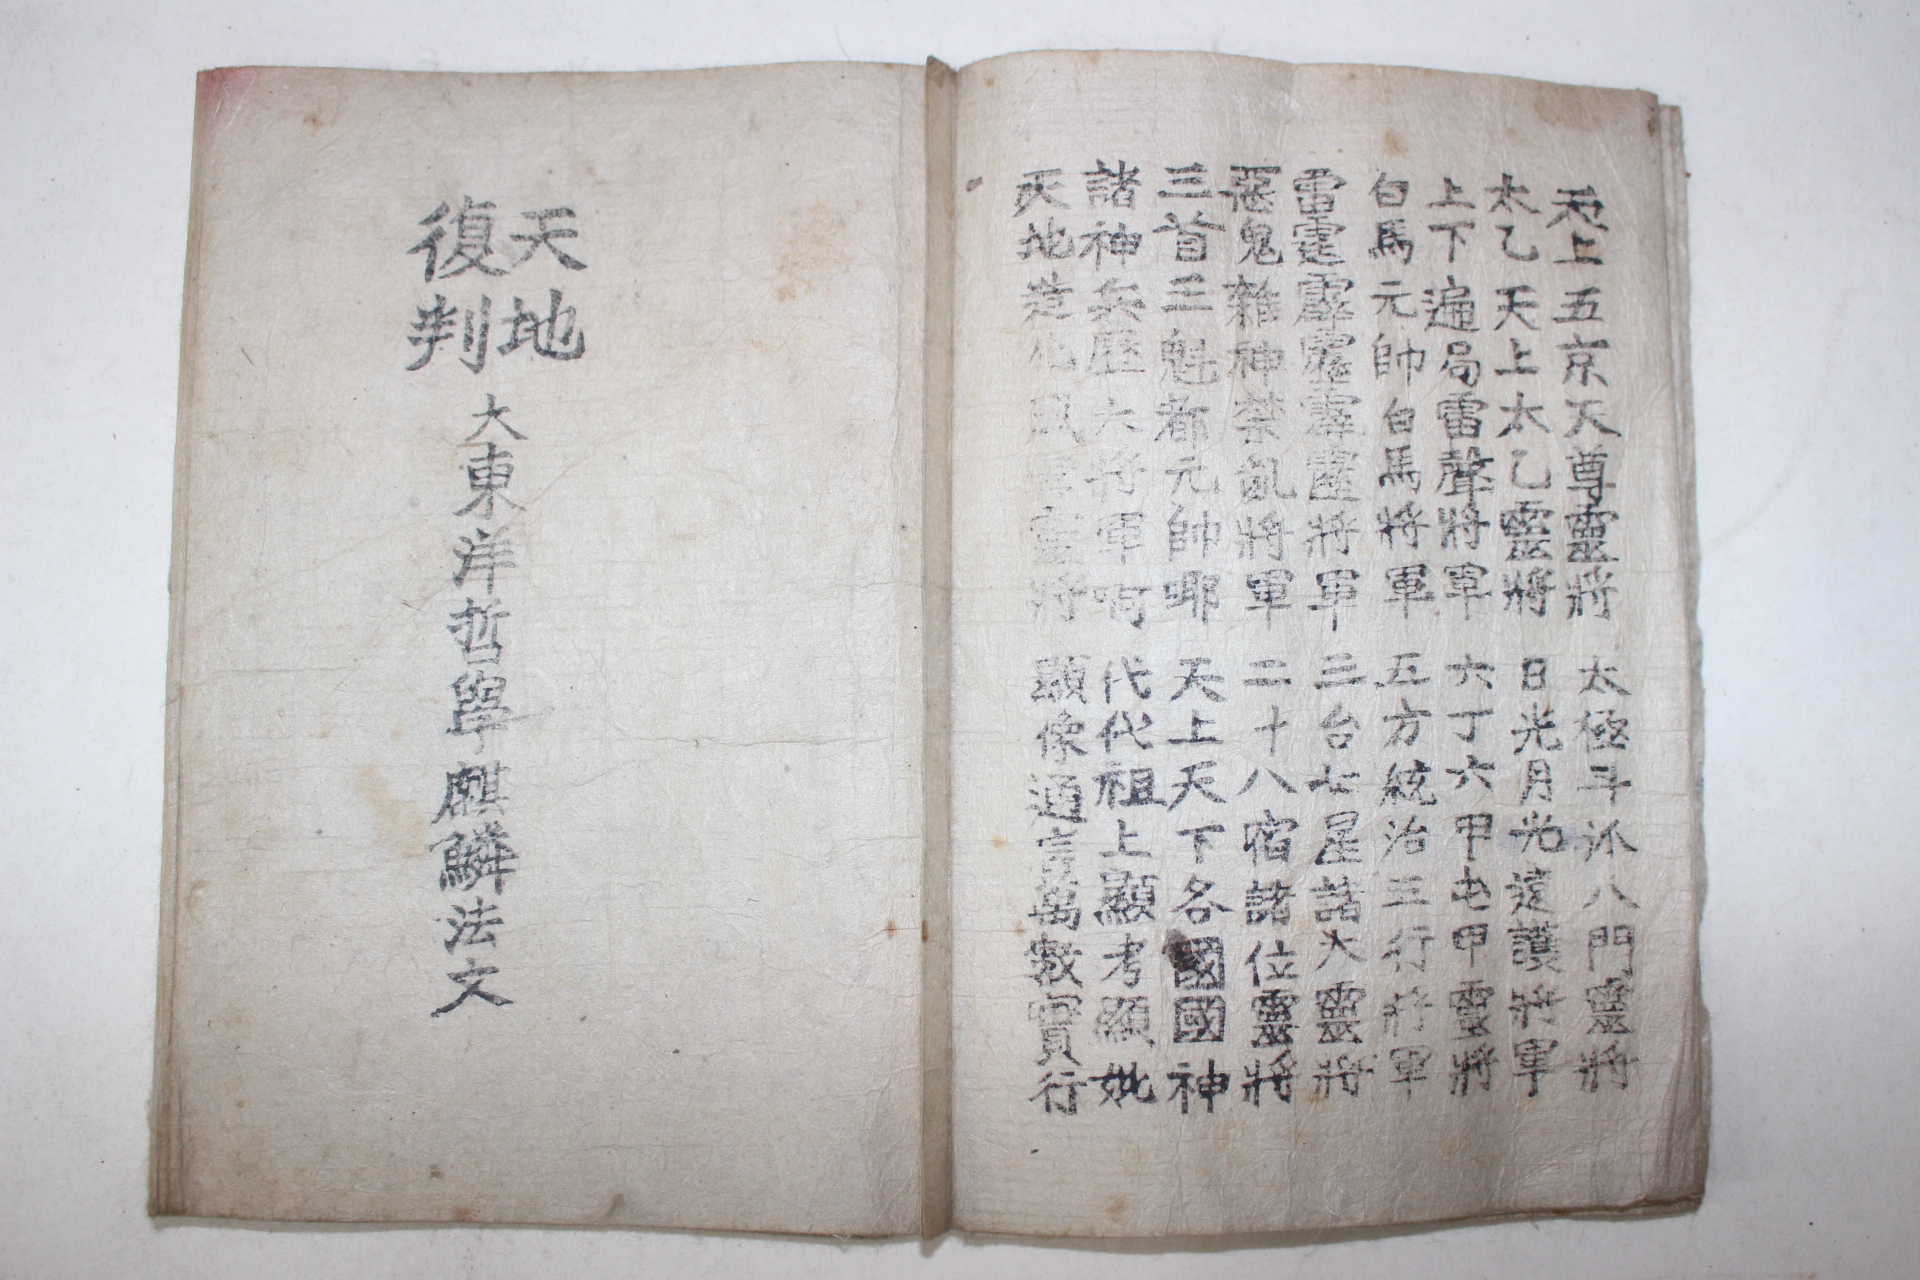 天上五京天尊靈將 太極斗 八門靈將
太乙天上太乙靈將 日光月光遠護將軍
上下遍局雷聲將軍 六丁六甲屯甲靈將
白馬元帥白馬將軍 五方統治三行將軍
雷霆霹靂霹靂將軍 三台七星諸大靈將
惡鬼雜神禁亂將軍 二十八宿諸位靈將
三首三魁都元帥耶 天上天下各國國神
諸神兵歷大將軍 代代祖上顯考顯妣
天地造化風 靈將 顯像通 萬數實行
天地
復判
大東洋哲學麒麟法文